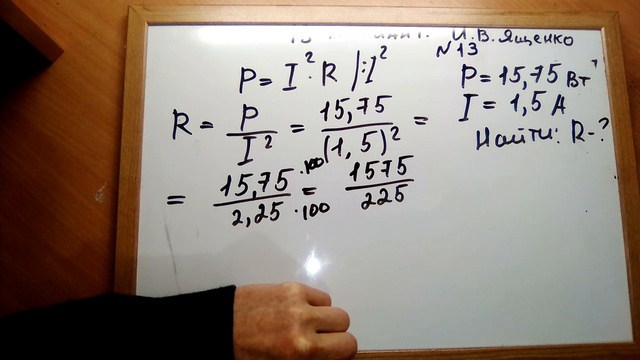 И.В. Ященко
N 13
P = I² · R |:I²
P = 15,75 Вт
I = 1,5 А
Найти: R - ?
R = P/I² = 15,75/(1,5)² =
= 15,75 · 100/2,25 · 100 = 1575/225